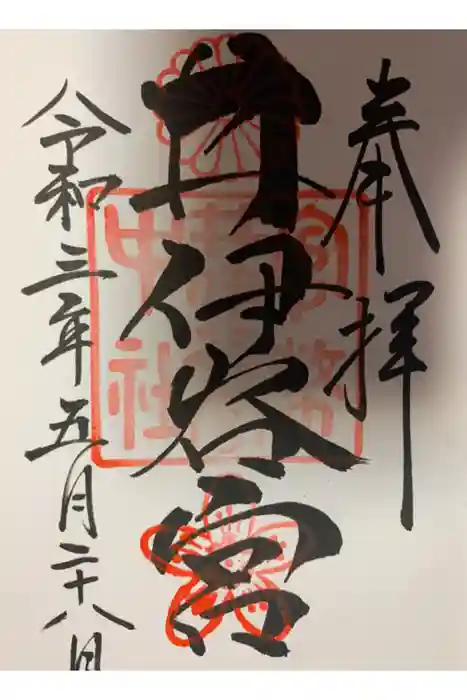 奉拝
井伊谷宮
令和三年五月二十八日
中社